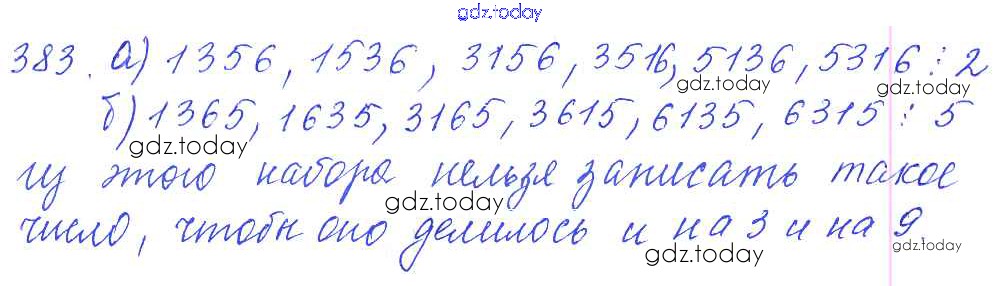 gdz.today
383. а) 1356, 1536, 3156, 3516, 5136, 5316 ⋮ 2
gdz.today gdz.today
б) 1365, 1635, 3165, 3615, 6135, 6315 ⋮ 5
gdz.today
из этого набора нельзя записать такое
gdz.today
число, чтобы оно делилось и на 3 и на 9
gdz.today gdz.today